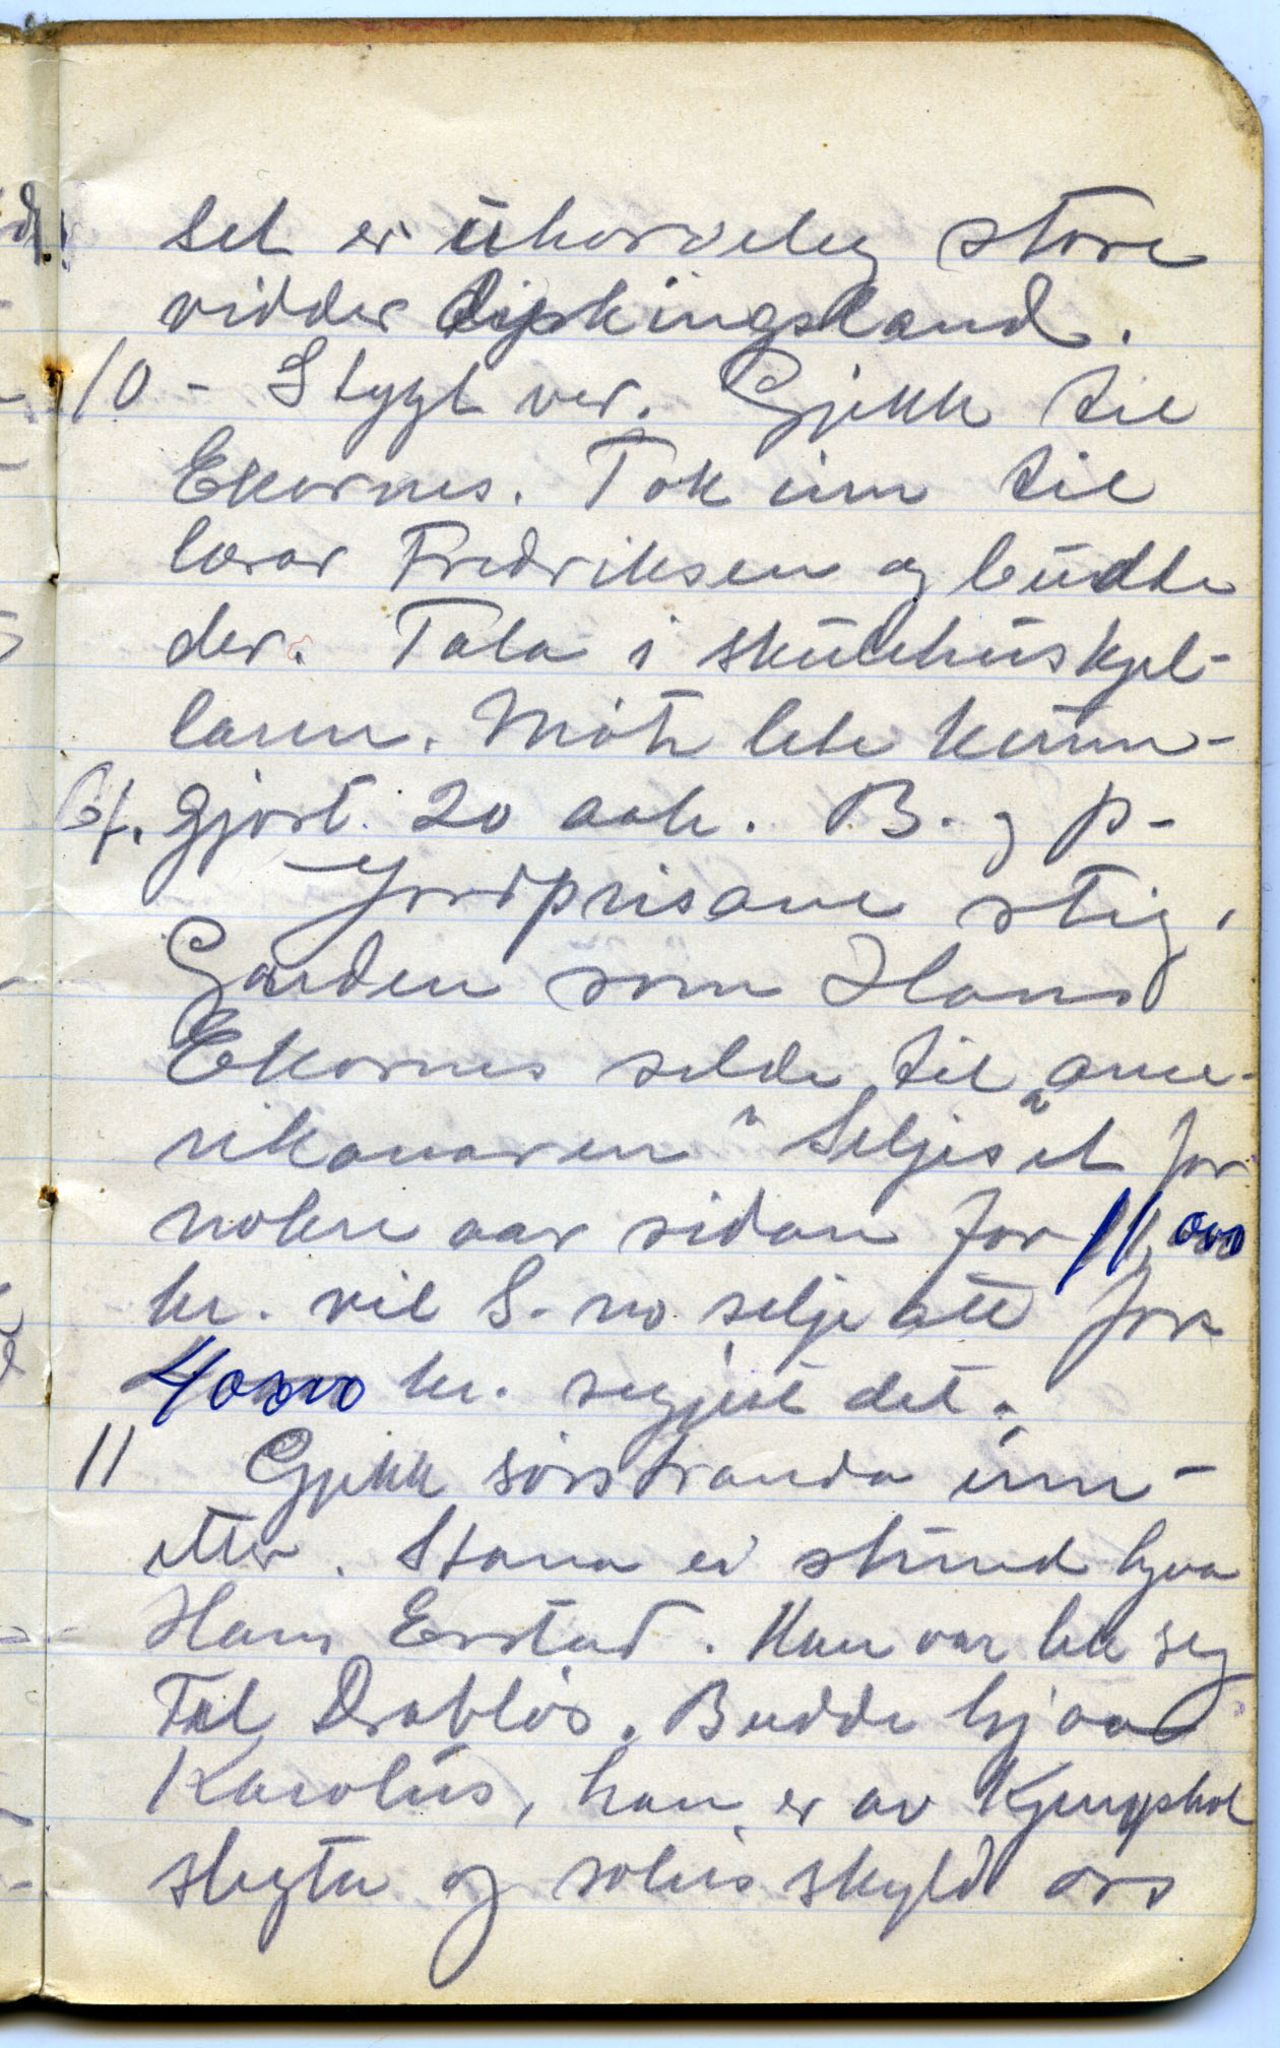 let er uhorveleg store
vidder dyrkingsland.
10 - Stygt ver. Gjekk til
Ekornes. Tok inn til
lærar Fredriksen og budde
der. Tala i skulehuskjel-
laren. Møte lite kunn-
gjort. 20 aah. B. og p-
Jordprisane stig.
Garden som Hans
Ekornes selde til "ame-
rikanaren" Seljeset for
nokre aar sidan for 11,000
kr. vil S. no selje att for
40000 kr. segjest det.
11 Gjekk sørstranda inn-
etter. Stana ei stund hjaa
Hans Erstad. Han var lik seg
Til Drabløs. Budde hjaa
Karolus, han er av
slegta og soleis skyld oss